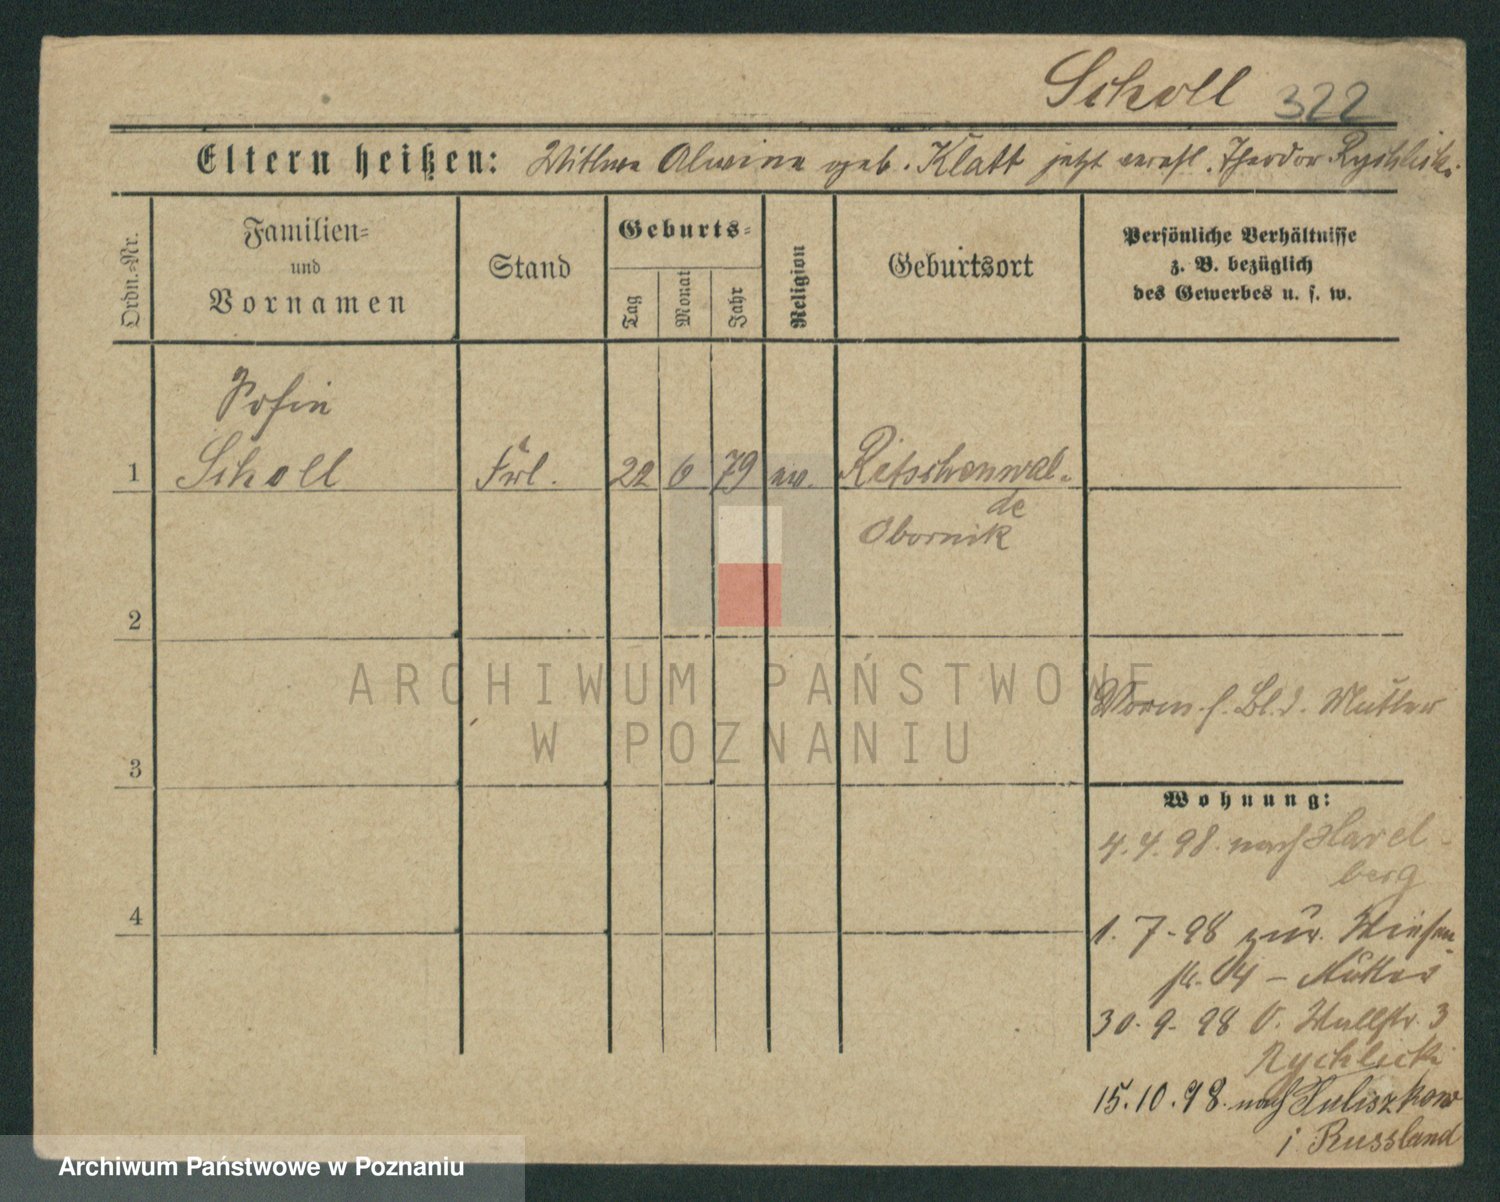 Scholl 322
Eltern heißen: Wittwe Alwine geb. Klatt jetzt verehl. Theodor Rychlicki
Ordn.=Nr.
Familien=
und
Vornamen
Stand
Geburts=
Tag
Monat
Jahr
Religion
Geburtsort
Persönliche Verhältnisse
z. B. bezüglich
des Gewerbes u. s. w.
Sofie
1 Scholl Frl. 22 6 79 ev. Ritschenwal-
de
Obornik
2
ARCHIWUM PAŃSTWOWE
W POZNANIU
Vorm. s. Bl. d. Mutter
3
Wohnung:
4.4.98. nach Havel-
berg
4
1.7-98 zur. Wiesen-
str. 14 - Mutter
30-9-98 O. Wallstr. 3
Rychlicki
15.10.98. nach Tuliszkow
i Russland
Archiwum Państwowe w Poznaniu